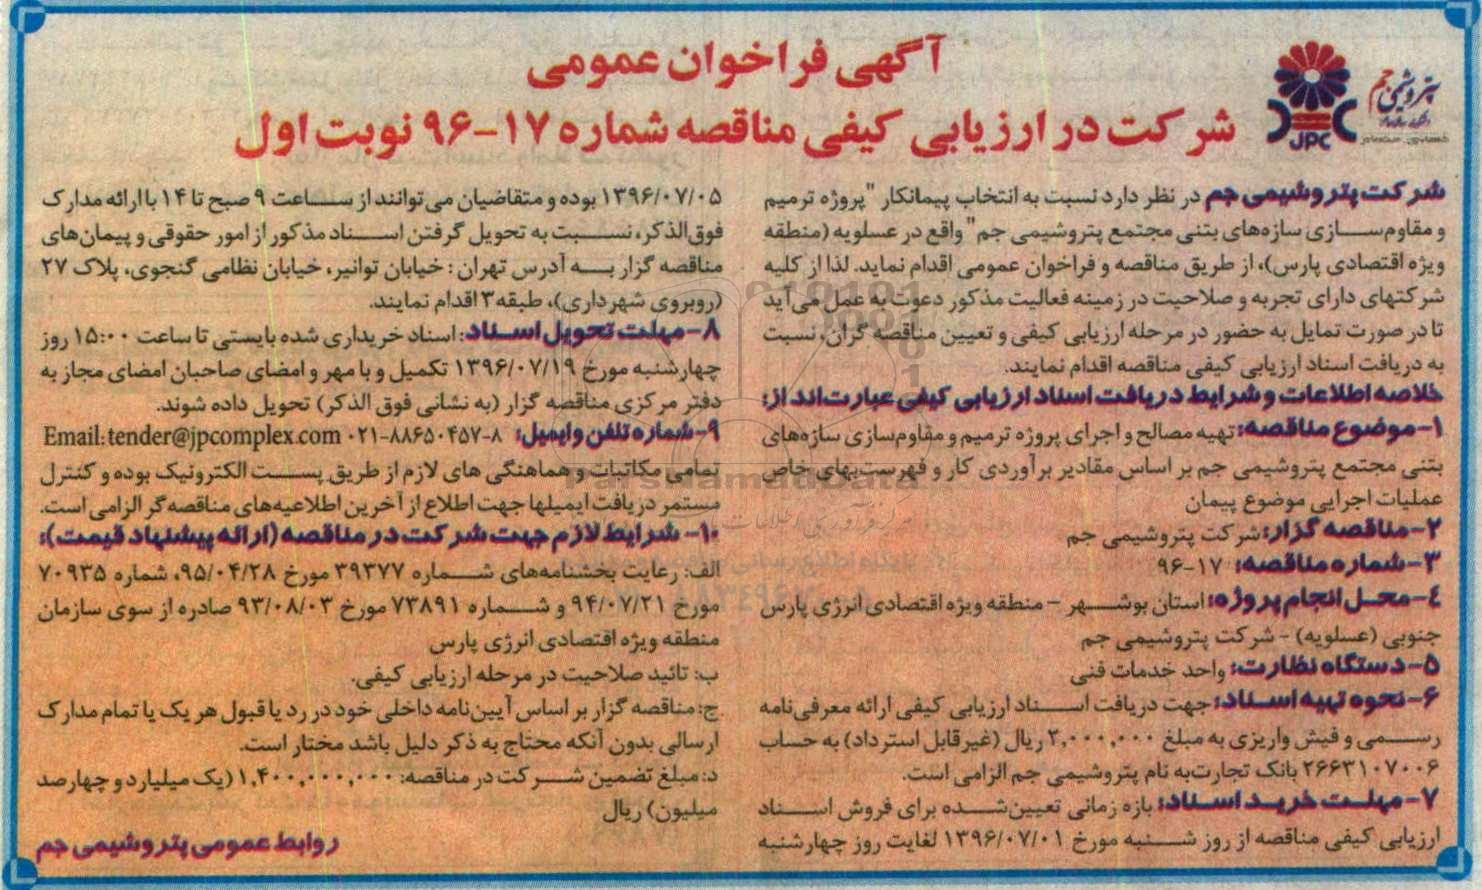 آگهی فراخوان عمومی
شرکت در ارزیابی کیفی مناقصه شماره ۱۷-۹۶ نوبت اول
پتروشیمی جم
JPC
شرکت پتروشیمی جم در نظر دارد نسبت به انتخاب پیمانکار "پروژه ترمیم
و مقاوم‌سازی سازه‌های بتنی مجتمع پتروشیمی جم" واقع در عسلویه (منطقه
ویژه اقتصادی پارس)، از طریق مناقصه و فراخوان عمومی اقدام نماید. لذا از کلیه
شرکتهای دارای تجربه و صلاحیت در زمینه فعالیت مذکور دعوت به عمل می‌آید
تا در صورت تمایل به حضور در مرحله ارزیابی کیفی و تعیین مناقصه گران، نسبت
به دریافت اسناد ارزیابی کیفی مناقصه اقدام نمایند.
خلاصه اطلاعات و شرایط دریافت اسناد ارزیابی کیفی عبارت‌اند از:
۱-موضوع مناقصه: تهیه مصالح و اجرای پروژه ترمیم و مقاوم‌سازی سازه‌های
بتنی مجتمع پتروشیمی جم بر اساس مقادیر برآوردی کار و فهرست‌بهای خاص
عملیات اجرایی موضوع پیمان
۲-مناقصه گزار: شرکت پتروشیمی جم
۳-شماره مناقصه: ۱۷-۹۶
۴-محل انجام پروژه: استان بوشهر – منطقه ویژه اقتصادی انرژی پارس
جنوبی (عسلویه) - شرکت پتروشیمی جم
۵-دستگاه نظارت: واحد خدمات فنی
۶-نحوه تهیه اسناد: جهت دریافت اسناد ارزیابی کیفی ارائه معرفی‌نامه
رسمی و فیش واریزی به مبلغ ۲,۰۰۰,۰۰۰ ریال (غیرقابل استرداد) به حساب
۲۶۶۳۱۰۷۰۰۶ بانک تجارت به نام پتروشیمی جم الزامی است.
۷-مهلت خرید اسناد: بازه زمانی تعیین‌شده برای فروش اسناد
ارزیابی کیفی مناقصه از روز شنبه مورخ ۱۳۹۶/۰۷/۰۱ لغایت روز چهارشنبه
۱۳۹۶/۰۷/۰۵ بوده و متقاضیان می‌توانند از ساعت ۹ صبح تا ۱۴ با ارائه مدارک
فوق‌الذکر، نسبت به تحویل گرفتن اسناد مذکور از امور حقوقی و پیمان‌های
مناقصه گزار به آدرس تهران : خیابان توانیر، خیابان نظامی گنجوی، پلاک ۲۷
(روبروی شهرداری)، طبقه ۳ اقدام نمایند.
۸-مهلت تحویل اسناد: اسناد خریداری شده بایستی تا ساعت ۱۵:۰۰ روز
چهارشنبه مورخ ۱۳۹۶/۰۷/۱۹ تکمیل و با مهر و امضای صاحبان امضای مجاز به
دفتر مرکزی مناقصه گزار (به نشانی فوق الذکر) تحویل داده شوند.
۹-شماره تلفن و ایمیل: ۸-۸۸۶۵۰۴۵۷-۰۲۱ Email: tender@jpcomplex.com
تمامی مکاتبات و هماهنگی های لازم از طریق پست الکترونیک بوده و کنترل
مستمر دریافت ایمیلها جهت اطلاع از آخرین اطلاعیه‌های مناقصه‌گر الزامی است.
۱۰- شرایط لازم جهت شرکت در مناقصه (ارائه پیشنهاد قیمت):
الف: رعایت بخشنامه‌های شماره ۳۹۳۷۷ مورخ ۹۵/۰۴/۲۸، شماره ۷۰۹۳۵
مورخ ۹۴/۰۷/۲۱ و شماره ۷۳۸۹۱ مورخ ۹۳/۰۸/۰۳ صادره از سوی سازمان
منطقه ویژه اقتصادی انرژی پارس
ب: تائید صلاحیت در مرحله ارزیابی کیفی.
ج: مناقصه گزار بر اساس آیین‌نامه داخلی خود در رد یا قبول هر یک یا تمام مدارک
ارسالی بدون آنکه محتاج به ذکر دلیل باشد مختار است.
د: مبلغ تضمین شرکت در مناقصه: ۱,۴۰۰,۰۰۰,۰۰۰ (یک میلیارد و چهارصد
میلیون) ریال
روابط عمومی پتروشیمی جم
ParsNamadData